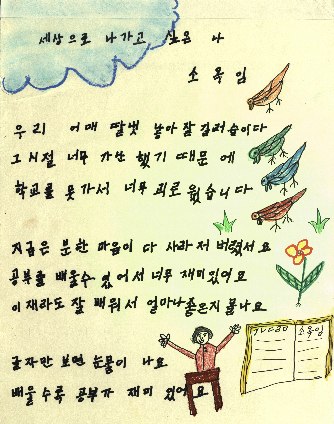 세상으로 나가고 싶은 나
소옥임
우리 어매 딸셋 낳아 잘 길러습이다
그 시절 너무 가난 했기 때문 에
학교를 못가서 너무 괴로 웠습니다
지금은 분한 마음이 다 사라저 버렸서요
공부를 배울수 있어서 너무 재미있어요
이재라도 잘 배워서 얼마나 좋은지 몰나요
글자만 보면 눈물이 나요
배울수록 공부가 재미 있어요
ㄱㄴㄷㄹㅁ 소옥임